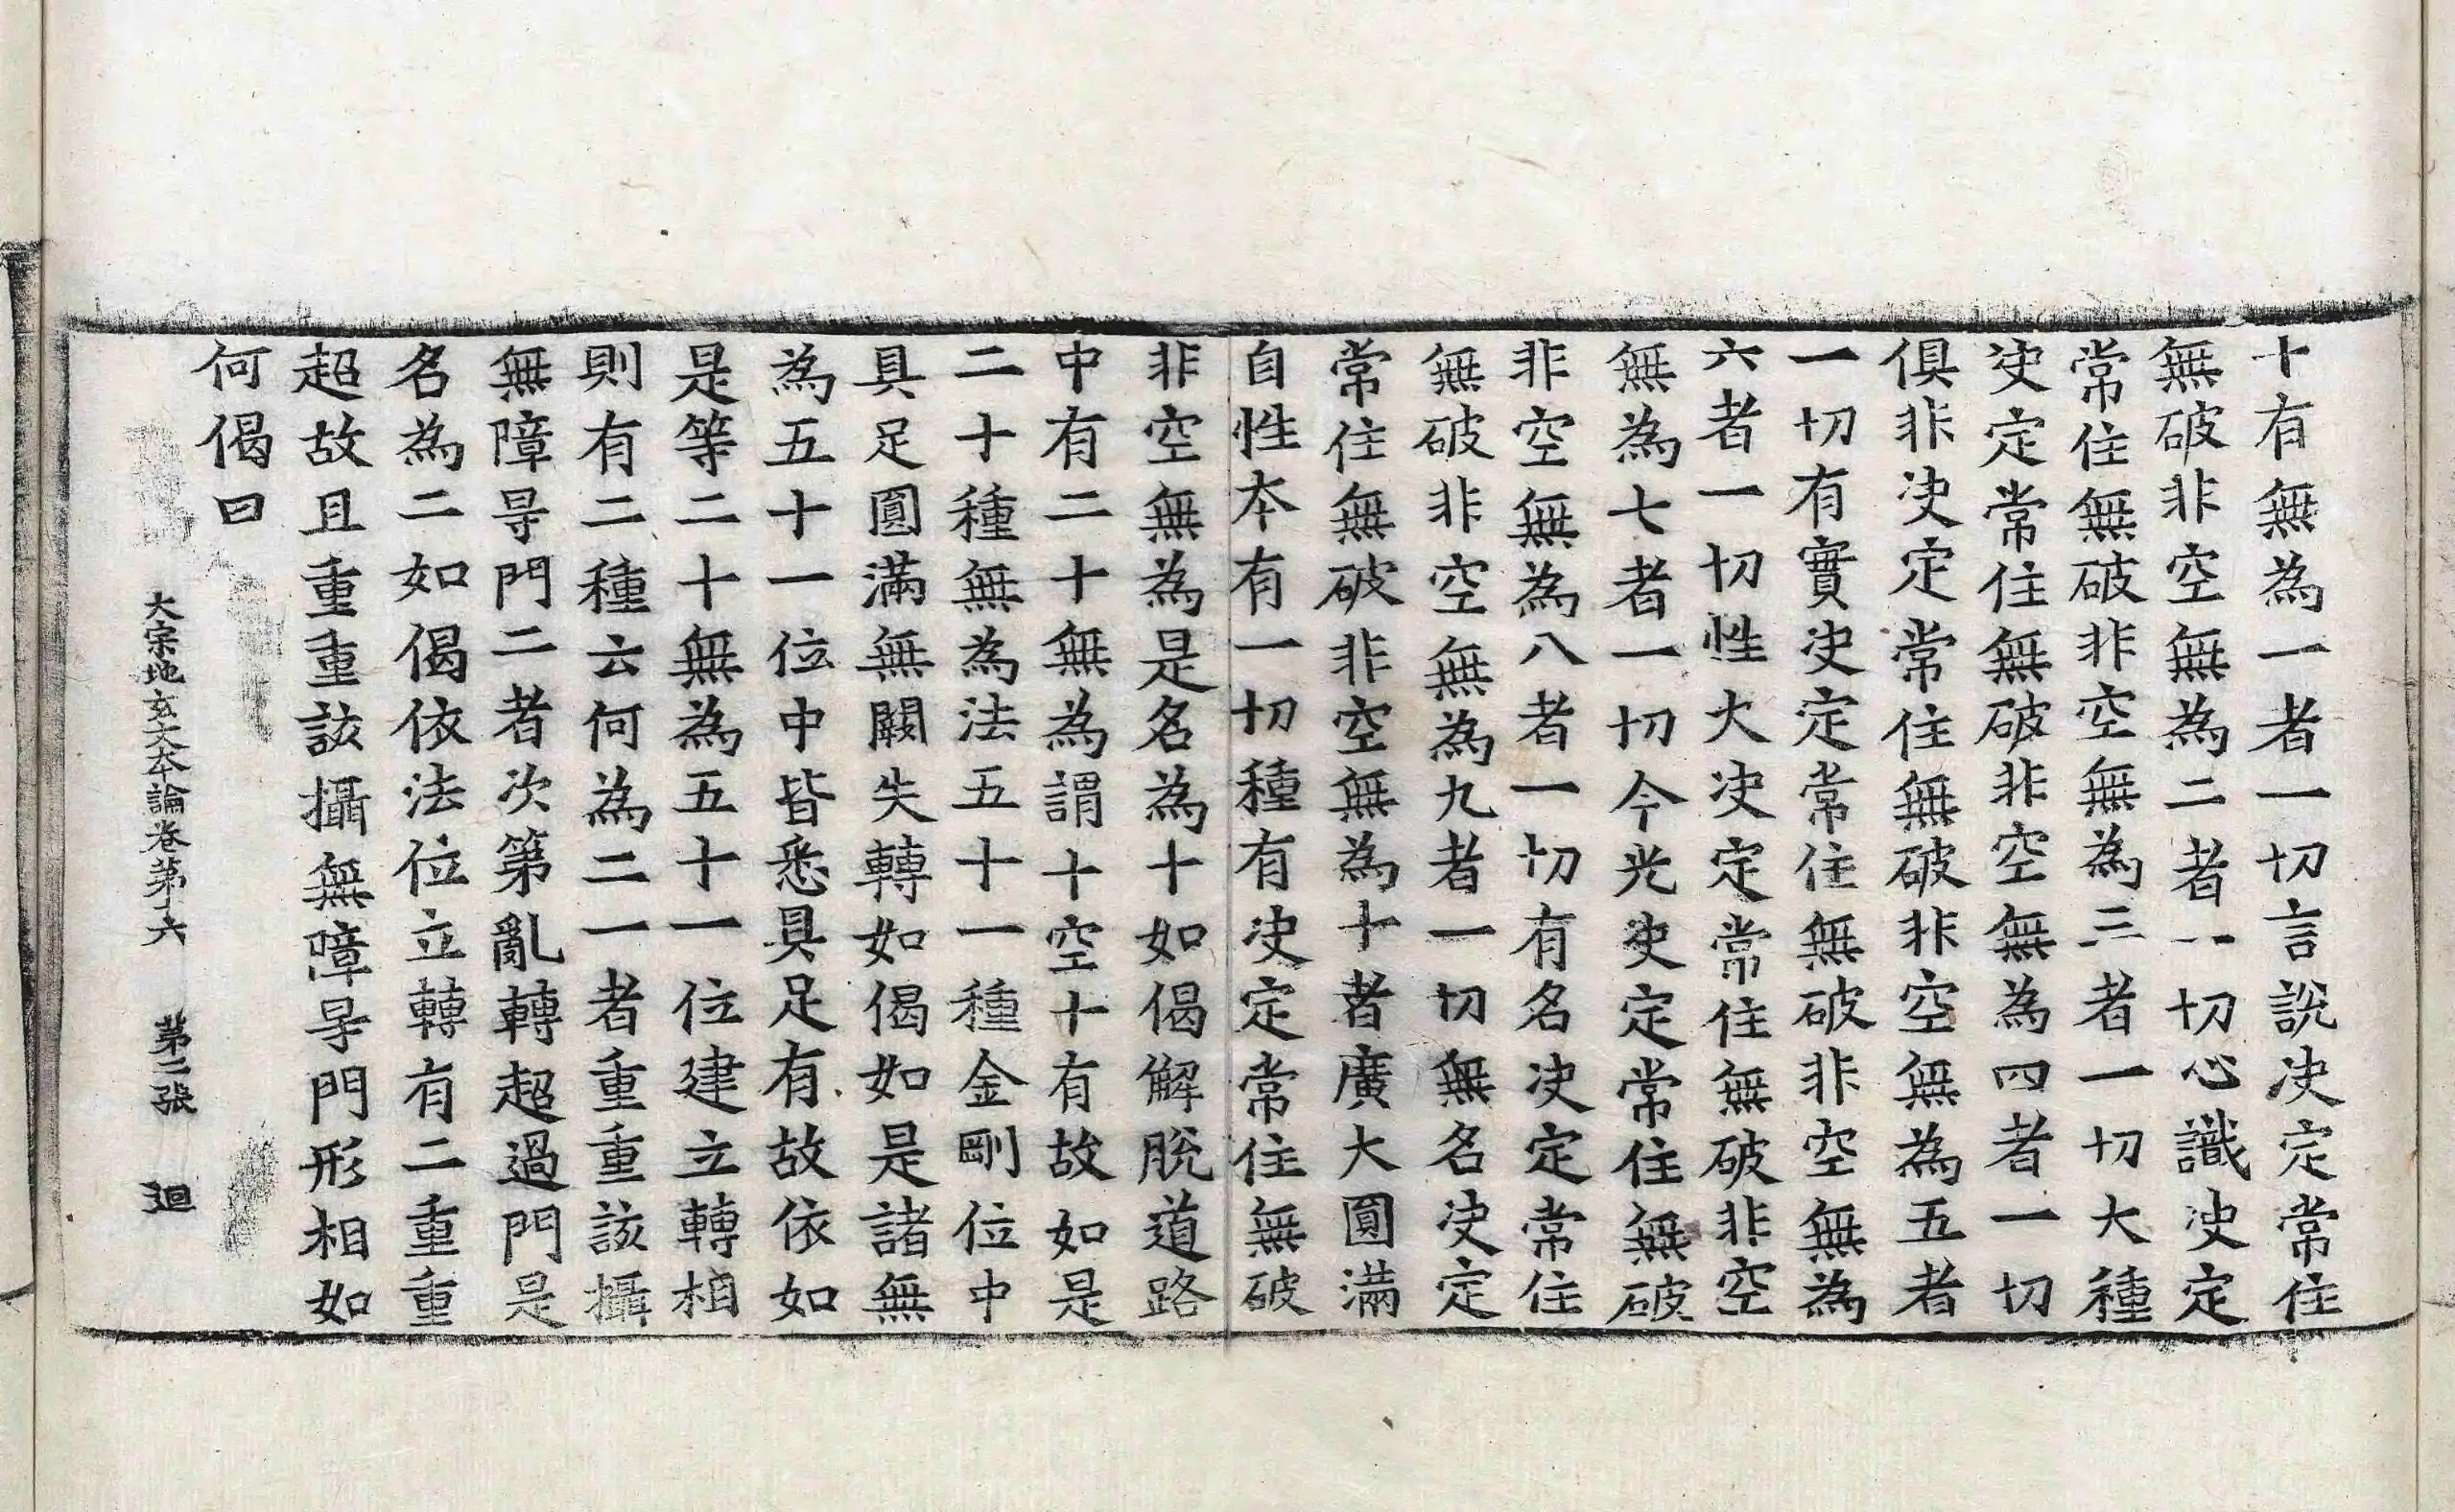 十有無為一者一切言說决定常住
無破非空無為二者一切心識决定
常住無破非空無為三者一切大種
决定常住無破非空無為四者一切
俱非决定常住無破非空無為五者
一切有實决定常住無破非空無為
六者一切性大决定常住無破非空
無為七者一切今光决定常住無破
非空無為八者一切有名决定常住
無破非空無為九者一切無名决定
常住無破非空無為十者廣大圓滿
自性本有一切種有决定常住無破
非空無為是名為十如偈解脫道路
中有二十無為謂十空十有故如是
二十種無為法五十一種金剛位中
具足圓滿無闕失轉如偈如是諸無
為五十一位中皆悉具足有故依如
是等二十無為五十一位建立轉相
則有二種云何為二一者重重該攝
無障㝵門二者次第亂轉超過門是
名為二如偈依法位立轉有二重重
超故且重重該攝無障㝵門形相如
何偈曰
大宗地玄文本論卷第六 第二張 廻